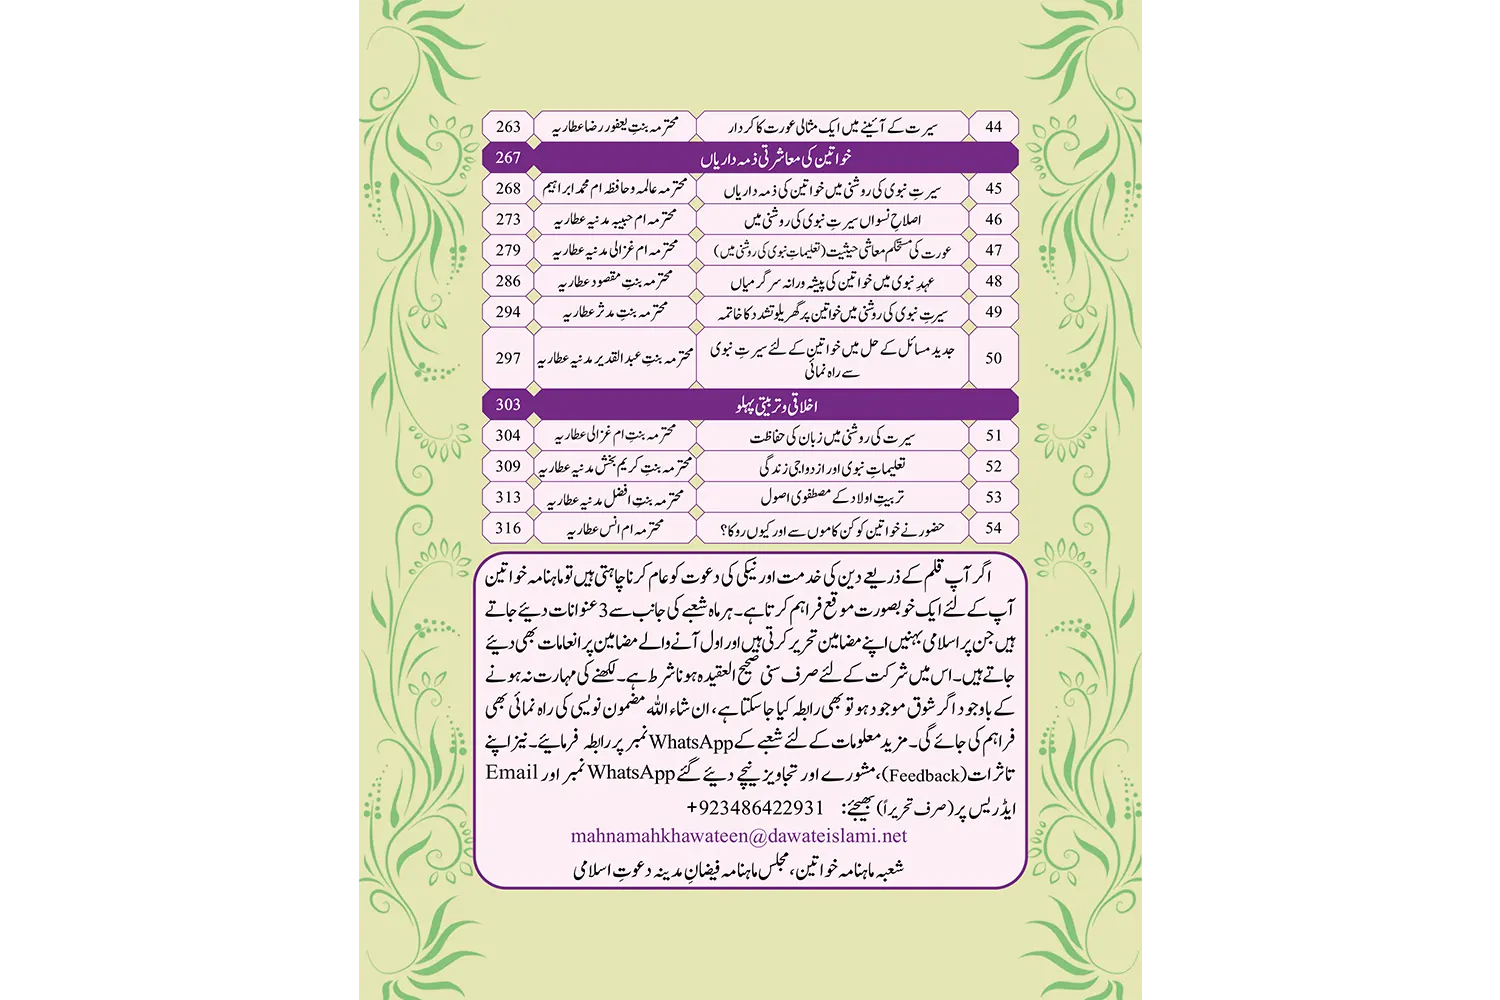 44 سیرت کے آئینے میں ایک مثالی عورت کا کردار محترمہ بنتِ یعفور رضا عطاریہ 263
خواتین کی معاشرتی ذمہ داریاں 267
45 سیرتِ نبوی کی روشنی میں خواتین کی ذمہ داریاں محترمہ عالمہ و حافظہ ام محمد ابراہیم 268
46 اصلاحِ نسواں سیرتِ نبوی کی روشنی میں محترمہ ام حبیبہ مدنیہ عطاریہ 273
47 عورت کی مستحکم معاشی حیثیت (تعلیماتِ نبوی کی روشنی میں) محترمہ ام غزالی مدنیہ عطاریہ 279
48 عہدِ نبوی میں خواتین کی پیشہ ورانہ سرگرمیاں محترمہ بنتِ مقصود عطاریہ 286
49 سیرتِ نبوی کی روشنی میں خواتین پر گھریلو تشدد کا خاتمہ محترمہ بنتِ مدثر عطاریہ 294
50 جدید مسائل کے حل میں خواتین کے لئے سیرتِ نبوی
سے راہ نمائی محترمہ بنتِ عبد القدیر مدنیہ عطاریہ 297
اخلاقی و تربیتی پہلو 303
51 سیرت کی روشنی میں زبان کی حفاظت محترمہ بنتِ ام غزالی عطاریہ 304
52 تعلیماتِ نبوی اور ازدواجی زندگی محترمہ بنتِ کریم بخش مدنیہ عطاریہ 309
53 تربیتِ اولاد کے مصطفوی اصول محترمہ بنتِ افضل مدنیہ عطاریہ 313
54 حضور نے خواتین کو کن کاموں سے اور کیوں روکا؟ محترمہ ام انس عطاریہ 316
اگر آپ قلم کے ذریعے دین کی خدمت اور نیکی کی دعوت کو عام کرنا چاہتی ہیں تو ماہنامہ خواتین
آپ کے لئے ایک خوبصورت موقع فراہم کرتا ہے۔ ہر ماہ شعبے کی جانب سے 3 عنوانات دیئے جاتے
ہیں جن پر اسلامی بہنیں اپنے مضامین تحریر کرتی ہیں اور اول آنے والے مضامین پر انعامات بھی دیئے
جاتے ہیں۔ اس میں شرکت کے لئے صرف سنی صحیح العقیدہ ہونا شرط ہے۔ لکھنے کی مہارت نہ ہونے
کے باوجود اگر شوق موجود ہو تو بھی رابطہ کیا جا سکتا ہے، ان شاء اللہ مضمون نویسی کی راہ نمائی بھی
فراہم کی جائے گی۔ مزید معلومات کے لئے شعبے کے WhatsApp نمبر پر رابطہ فرمائیے۔ نیز اپنے
تاثرات (Feedback)، مشورے اور تجاویز نیچے دیئے گئے WhatsApp نمبر اور Email
ایڈریس پر (صرف تحریراً) بھیجئے: +923486422931
mahnamahkhawateen@dawateislami.net
شعبہ ماہنامہ خواتین، مجلس ماہنامہ فیضانِ مدینہ دعوتِ اسلامی